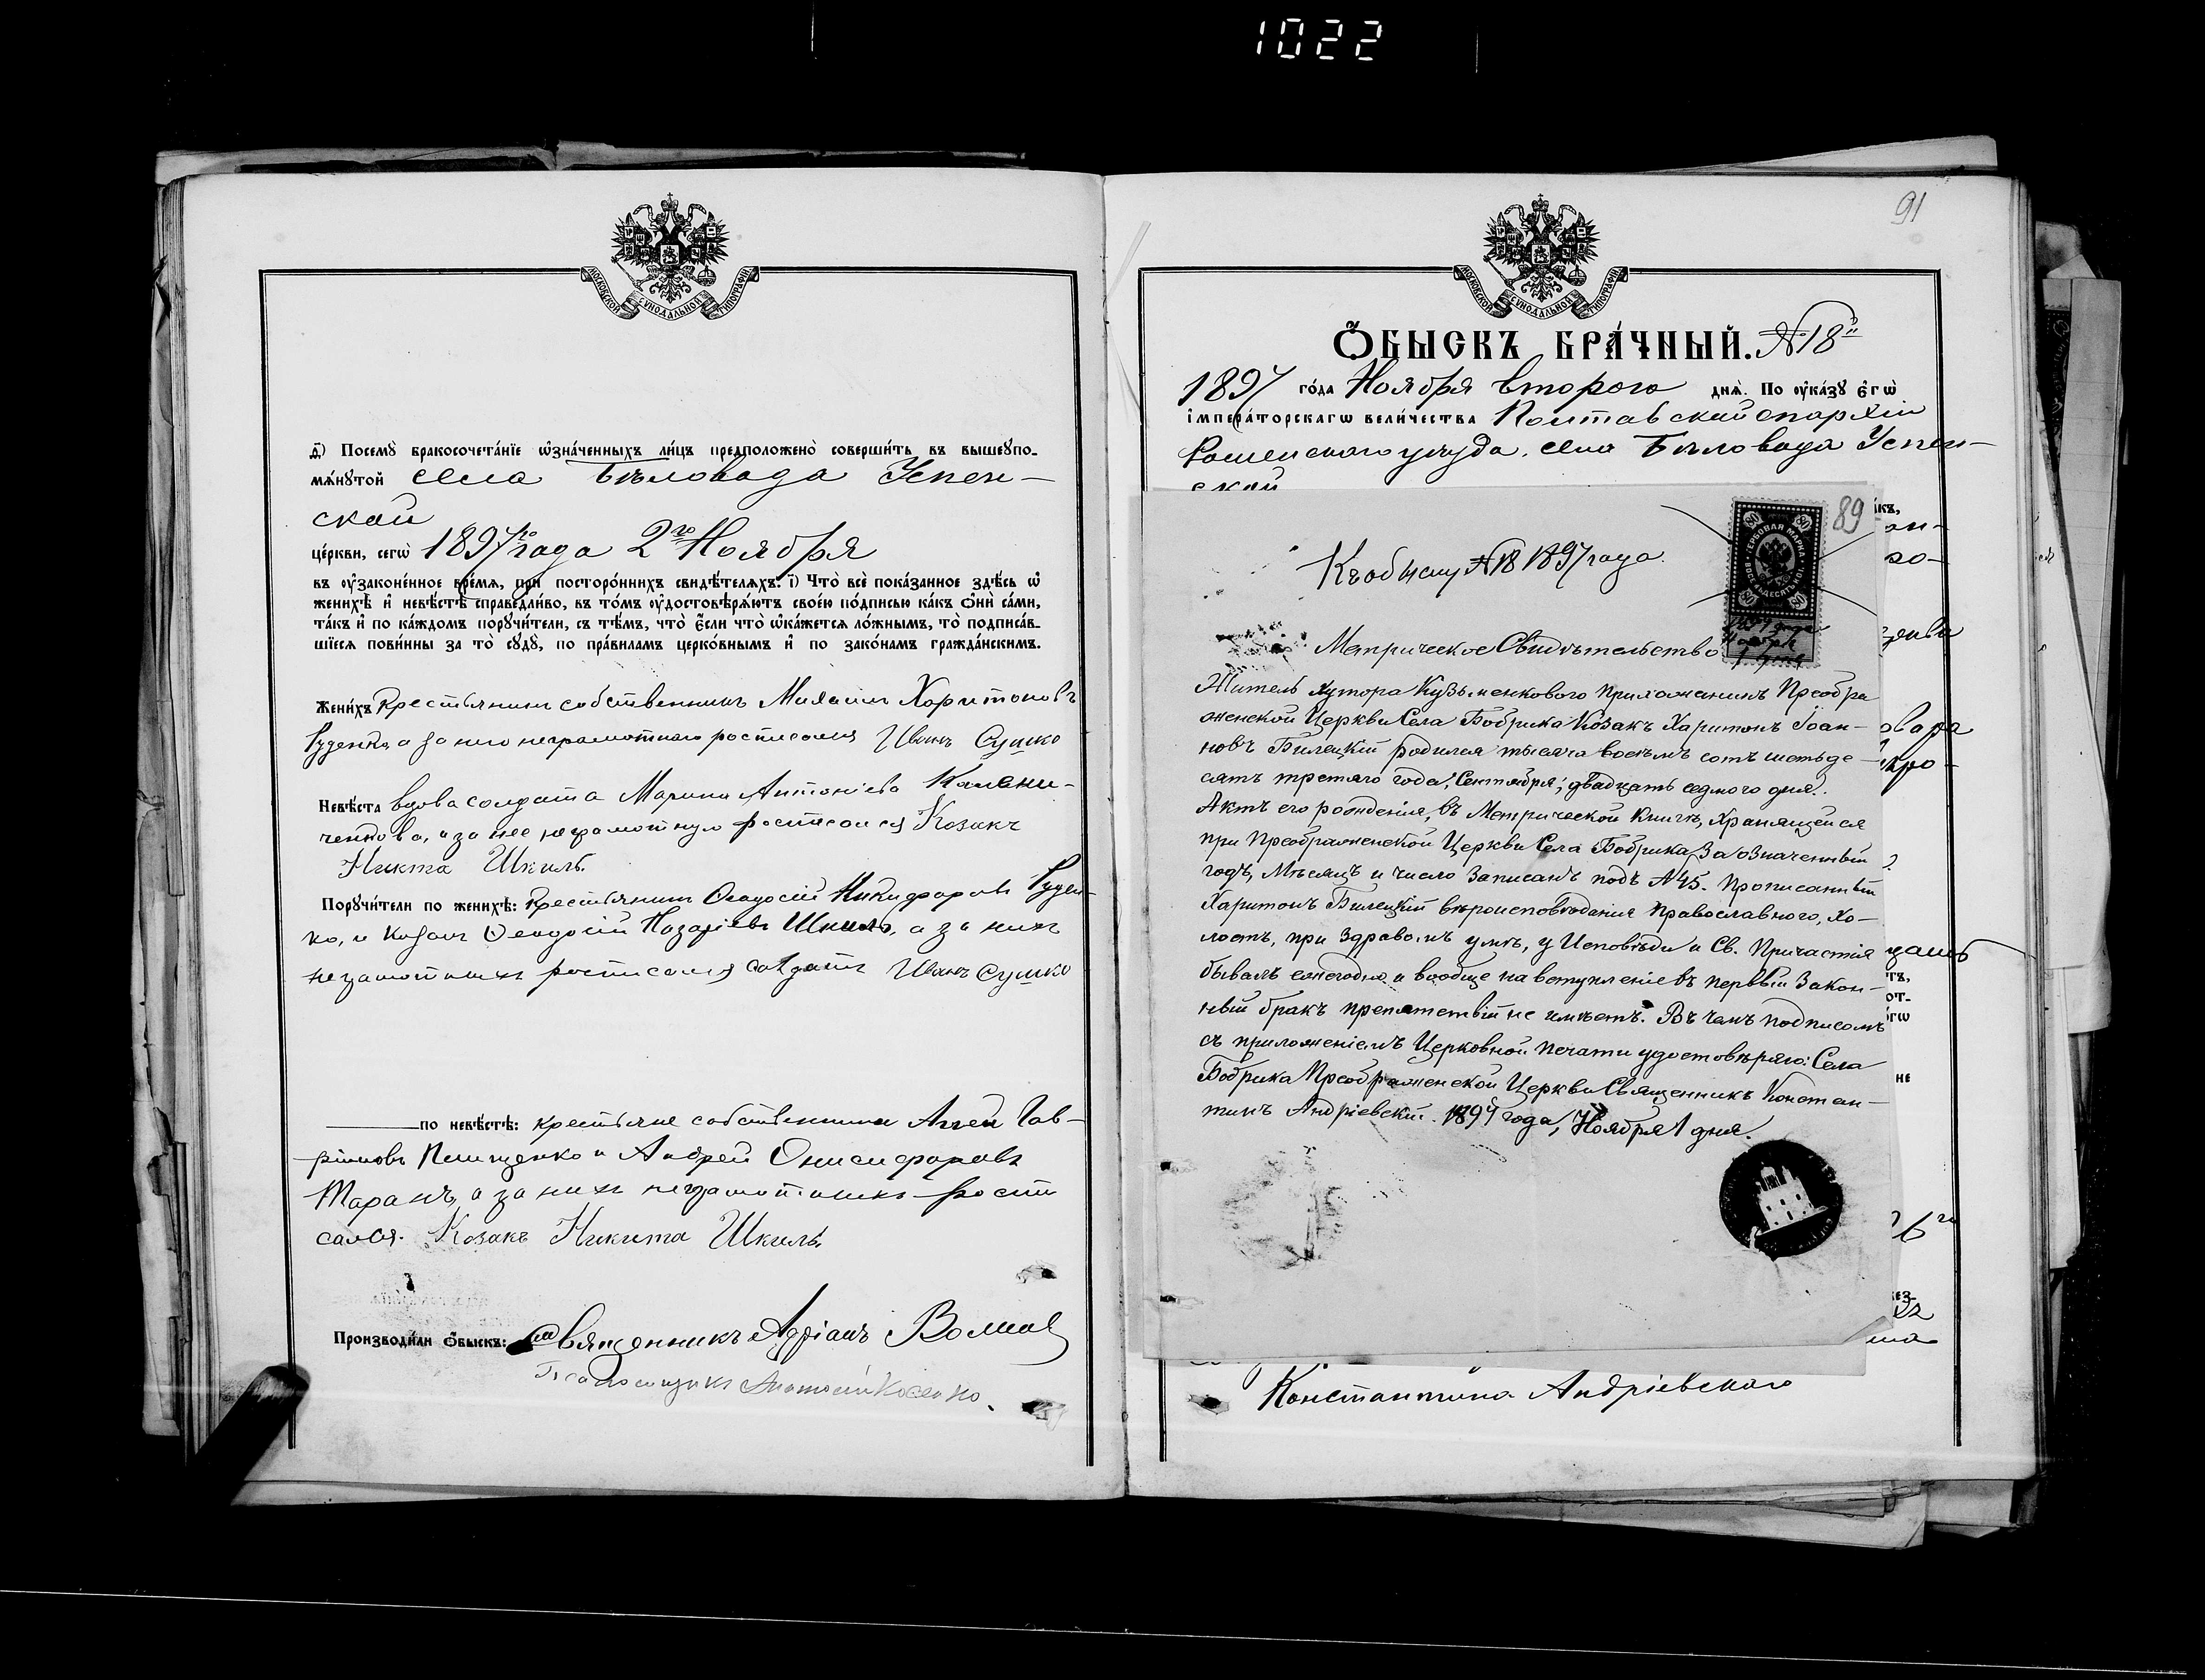 1022
МОСКОВСКОЙ СУНОДАЛЬНОЙ ТИПОГРАФІИ
д҃) Посемꙋ̀ бракосочета́нїе ѡ҆зна́ченныхъ ли́цъ предположено̀ соверши́ть въ вышеꙋпо-
мѧ́нꙋтой села Бѣловода Успен-
ской
це́ркви, сегѡ̀ 1897го года 2го Ноября
въ ᲂу҆зако́ненное вре́мѧ, при посторо́ннихъ свидѣ́телѧхъ. і҃) Что̀ всѐ пока́занное здѣ́сь ѡ҆
женихѣ̀ и҆ невѣ́стѣ справедли́во, въ то́мъ ᲂу҆достовѣрѧ́ютъ свое́ю по́дписью ка́къ ѻ҆нѝ са́ми,
та́къ и҆ по ка́ждомъ порꙋчи́тели, съ тѣ́мъ, что̀ є҆́сли что̀ ѡ҆ка́жетсѧ ло́жнымъ, то̀ подписа́в-
шїесѧ пови́нны за то̀ сꙋдꙋ̀, по пра́виламъ церко́внымъ и҆ по зако́намъ гражда́нскимъ.
Жени́хъ Крестьянинъ собственникъ Михаилъ Харитоновъ
Руденко, а за него неграмотнаго росписался Иванъ Сушко
Невѣ́ста вдова солдата Марина Антоніева Калени-
ченкова, а за нее неграмотную росписался Козакъ
Никита Шкиль.
Порꙋчи́тели по женихѣ̀: Крестьянинъ Ѳеодосій Никифоровъ Руден-
ко, и Козакъ Ѳеодосій Назаріевъ Шкиль, а за нихъ
неграмотныхъ росписался солдатъ Иванъ Сушко
по невѣ́стѣ: крестьяне собственники Аггей Гав-
риловъ и Андрей Онисифоровъ
Таранъ, а за нихъ неграмотныхъ роспи
сался. Козакъ Никита Шкиль.
Производи́ли ѻ҆́быскъ: Священникъ Адріанъ
Псаломщикъ Косенко.
91
МОСКОВСКОЙ СУНОДАЛЬНОЙ ТИПОГРАФІИ
Ѻ҆́БЫСКЪ БРА́ЧНЫЙ. №18й
1897 го́да Ноября второго днѧ̀. По ᲂу҆ка́зꙋ є҆гѡ̀
і҆мпера́торскагѡ вели́чества Полтавской епархіи
Роменского уѣзда, села Бѣловода Успен-
ской
89
ГЕРБОВАЯ МАРКА ВОСЕМЬДЕСЯТЪ КОП.
80 80 80 80
Къ обыску №18 1897 года.
1897 года
Ноября
1 дня
Метрическое Свидѣтельство
Житель хутора Кузьменкового прихожанинъ Преобра
женской Церкви Села Бобрика Козакъ Харитонъ Іоан-
новъ Билецкій родился тысяча восемь сотъ шестьде-
сятъ третяго года, Сентября, двадцать седмого дня.
Актъ его рожденія, въ Метрической Книгѣ, хранящейся
при Преображенской Церкви Села Бобрика, за означенный
годъ, мѣсяцъ и число записанъ подъ №45. Прописанный
Харитонъ Билецкій вѣроисповѣданія Православного, хо-
лостъ, при здравомъ умѣ, у Исповѣди и Св. Причастія
бывалъ ежегодно и вообще на вступленіе въ первый закон-
ный бракъ препятствій не имѣетъ. Въ чемъ подписомъ
съ приложеніемъ Церковной печати удостовѣряю: Села
Бобрика Преображенской Церкви Священникъ Констан-
тинъ Андріевскій. 1897 года, Ноября 1 дня.
Константина Андріевского